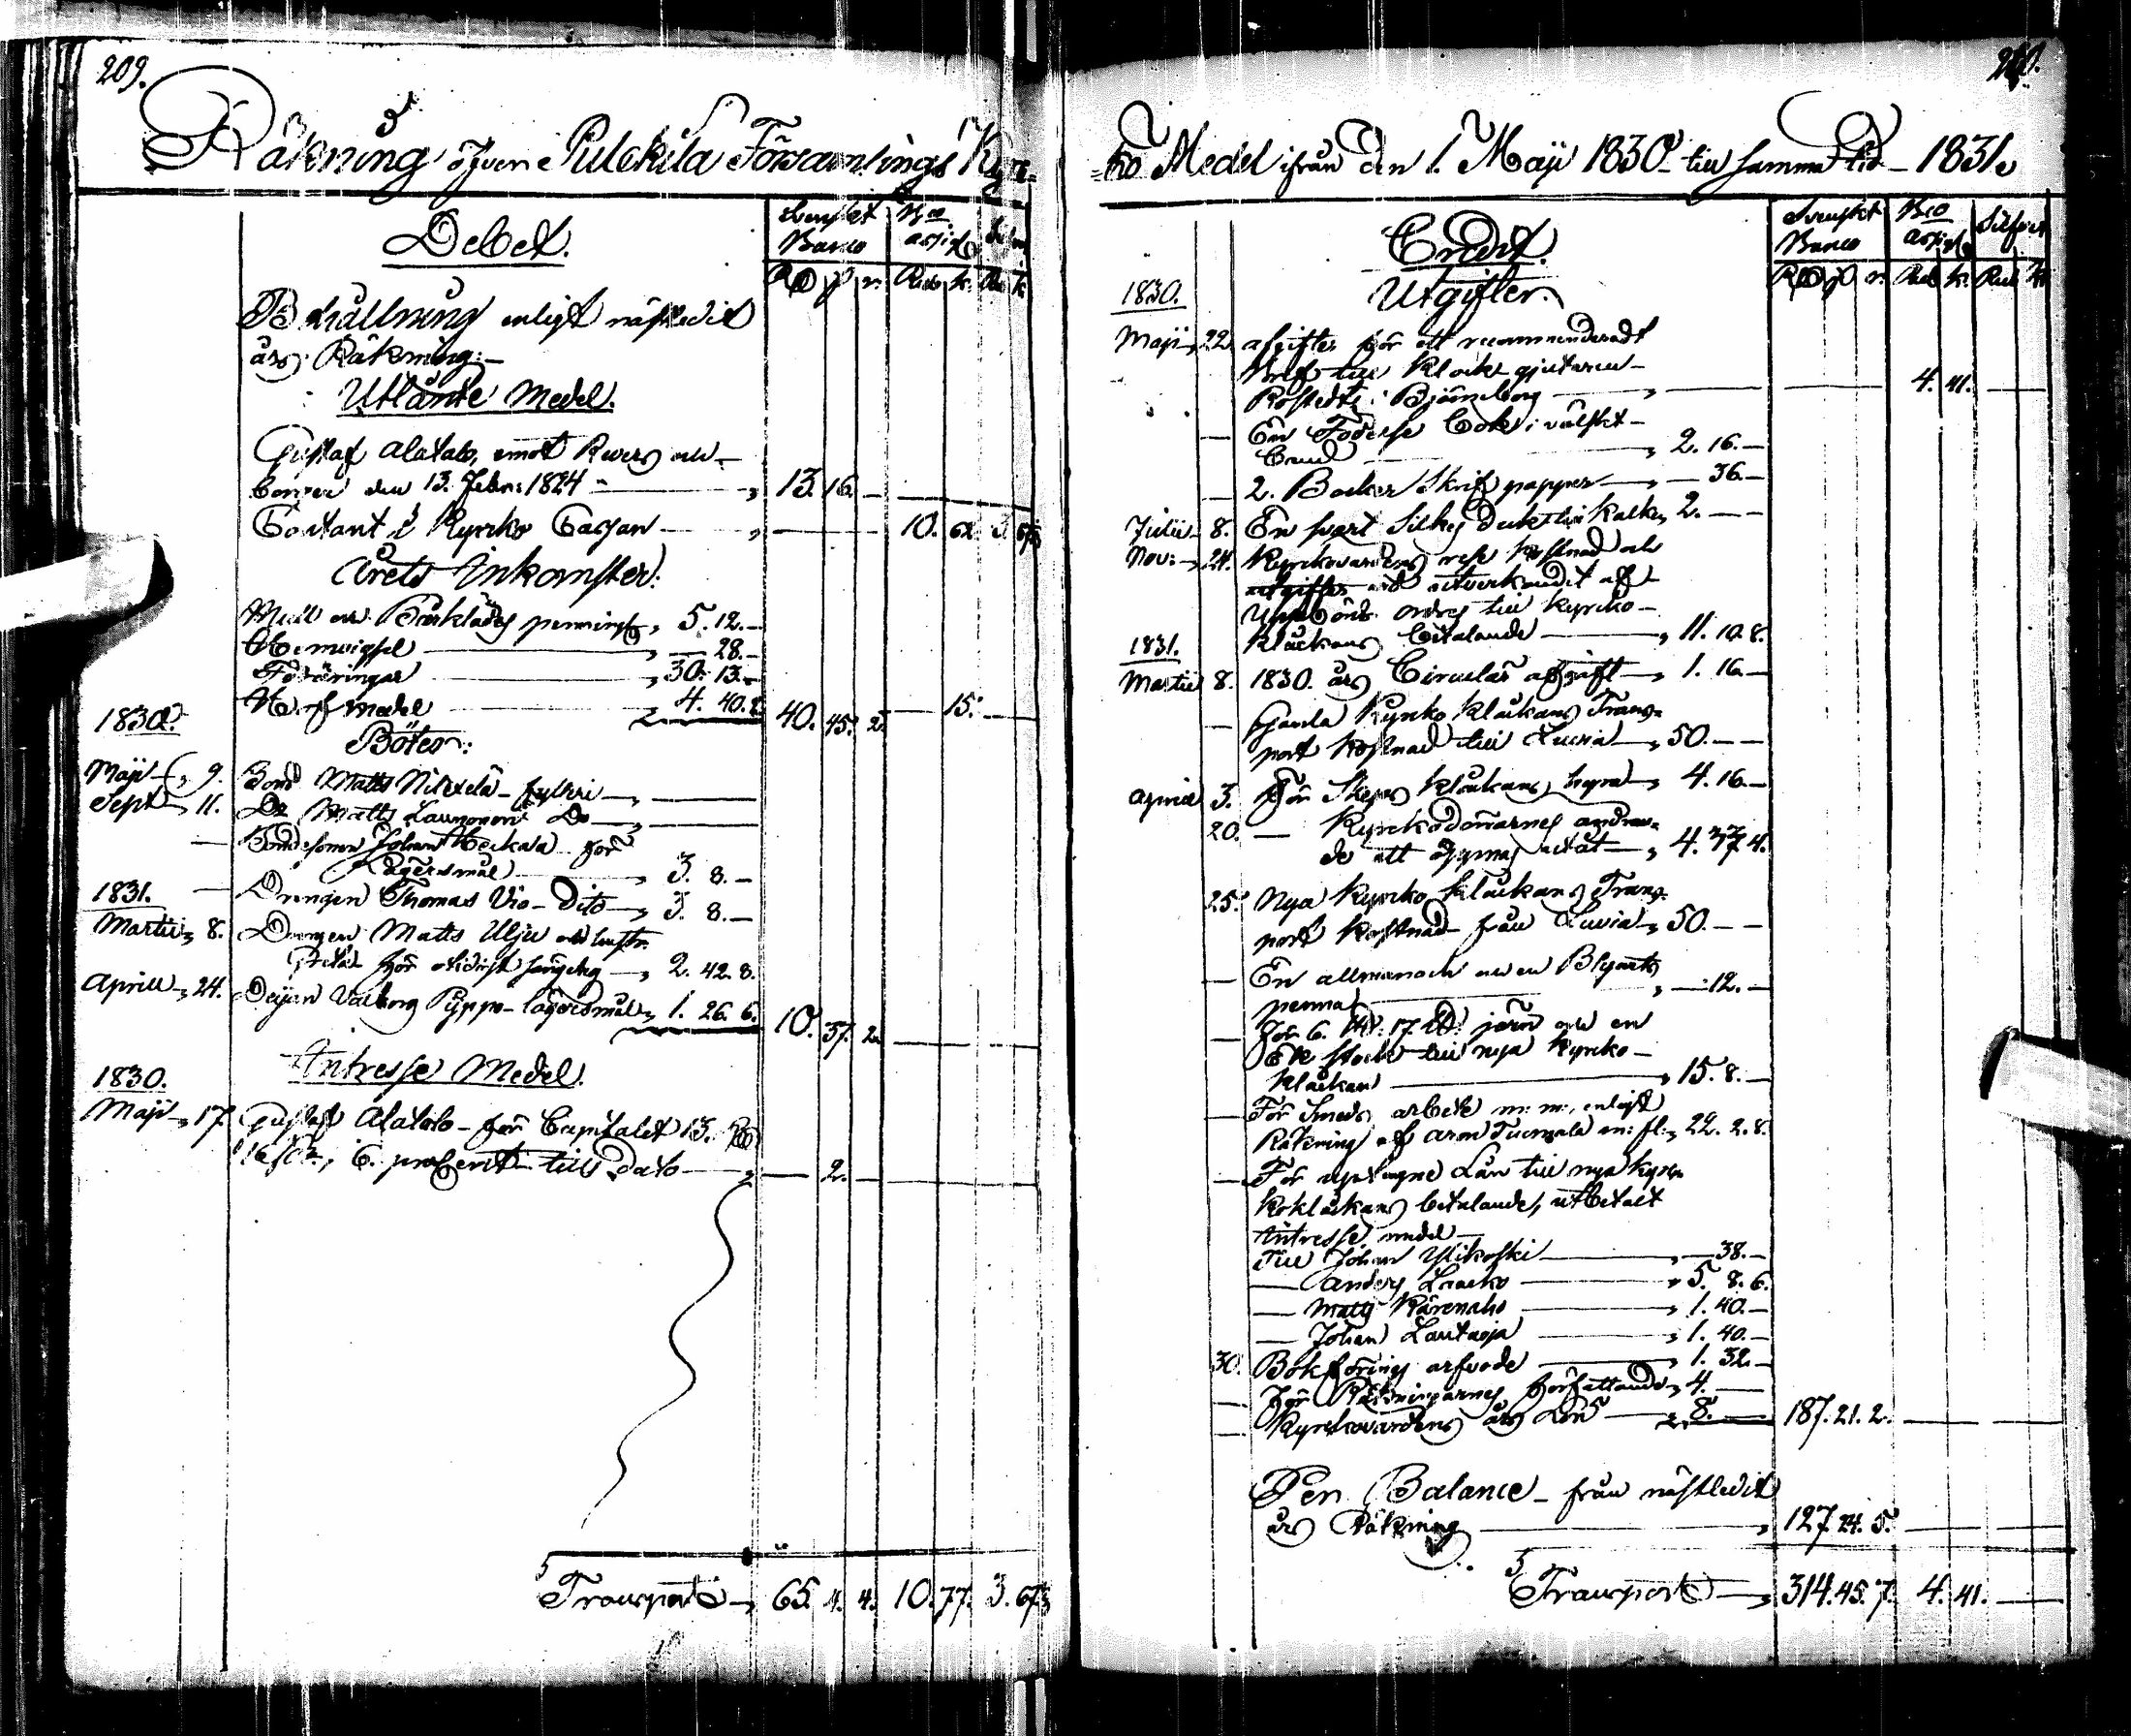 209.
Räkning öfver Pulckila Församlings Kyr=
Debet.
Svenskt Banco
B:co assig:
Silfver
Rd ß r. Rub. k. Rub k
Behållning enligt nästledit
års Räkning:-
Utlånte Medel.
Gustaf Alatalo, emot Revers och
den 13. Febr: 1824 - 13. 16. -
Contant i Kyrko Cassan - 10. 62. 3. 67
Årets Inkomster:
Mull och Bårklädes penningr, 5. 12. -
28. -
Föräringar 30. 13. -
Håf medel 4. 40. 2. 40. 45. 2. 15.
1830.
Böter:
Maji 9. Bond Matts fylleri
Sept 11. Do Matts Launonen Do
Bondesonen Johan för
Lägersmål 3. 8. -
1831. Drengen Thomas Vio - Dito 3. 8. -
Martii 8. Drengen Matts Ulju och hustr.
för otidigt sängelag 2. 42. 8.
Aprill 24. Pyppo - lägersmål 1. 26. 6. 10. 37. 2.
1830.
Intresse Medel.
Maji 17. Gustaf Alatalo - för Capitalet 13. Rd
16 ß, 6. procent till Dato 2.
Transport 65. 4. 4. 10. 77. 3. 67
210.
=ko Medel ifrån den 1. Maji 1830 till samma tid 1831.
Credit.
Svenskt Banco
B:co assig:
Silfver
Rd ß r. Rub k. Rub k
1830.
Utgifter.
Maji 22. afgifter för ett recommenderadt
Bref till Klock gjutaren
Rostedt i Björneborg 4. 41.
En Födelse bok i välskt
band 2. 16. -
2. Böcker Skrif papper - 36. -
Julii 8. En svart Silkes duk till kalken 2. - -
Nov: 24. Kyrkovärdens rese kostnad och
utgifter vid utverkandet af
ordres till kyrko
1831. klåckans betalande 11. 10. 8.
Martii 8. 1830. års Circulär afgift 1. 16. -
Gamla Kyrko klåckans Trans=
port kostnad till Luvia 50. - -
Aprill 3. För Skeps klåckans hyra 4. 16. -
20. - Kyrkodörarnes andra=
de att öppnas utåt 4. 37. 4.
25. Nya Kyrko klåckans Trans=
port kostnad från Luvia 50. - -
En allmanach och en Blyerts
penna - 12. -
För 6. 17. jern och en
Ek stock till nya kyrko
klåckan 15. 8. -
För Smeds arbete m: m:, enligt
Räkning af Aron Tuomala m: fl: 22. 2. 8.
För uptagne Lån till nya kyr=
koklåckans betalande, utbetalt
Intresse medel
Till Johan Ylikoski - 38. -
- Anders Laacko 5. 8. 6.
- Matts Kärenaho 1. 40. -
- Johan Lautaoja 1. 40. -
30. Bokförings arfvode 1. 32. -
För Räkningarnes författande 4. -
Kyrkovärdens års Lön 8. - 187. 21. 2.
Per Balance - från nästledit
års Räkning 127. 24. 5.
Transport 314. 45. 7. 4. 41.